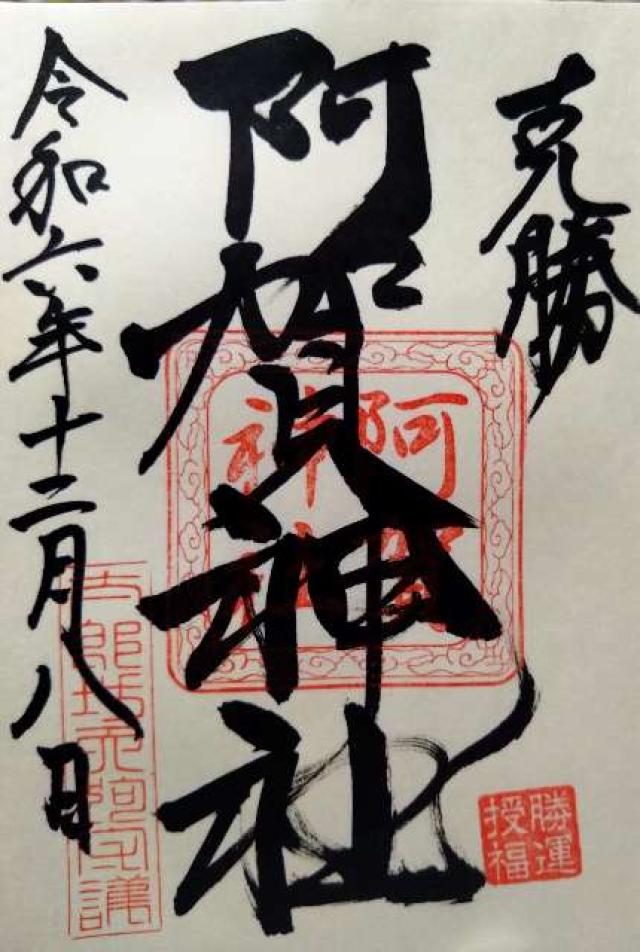 克勝
阿賀神社
令和六年十二月八日
阿賀
神社
勝運
授福